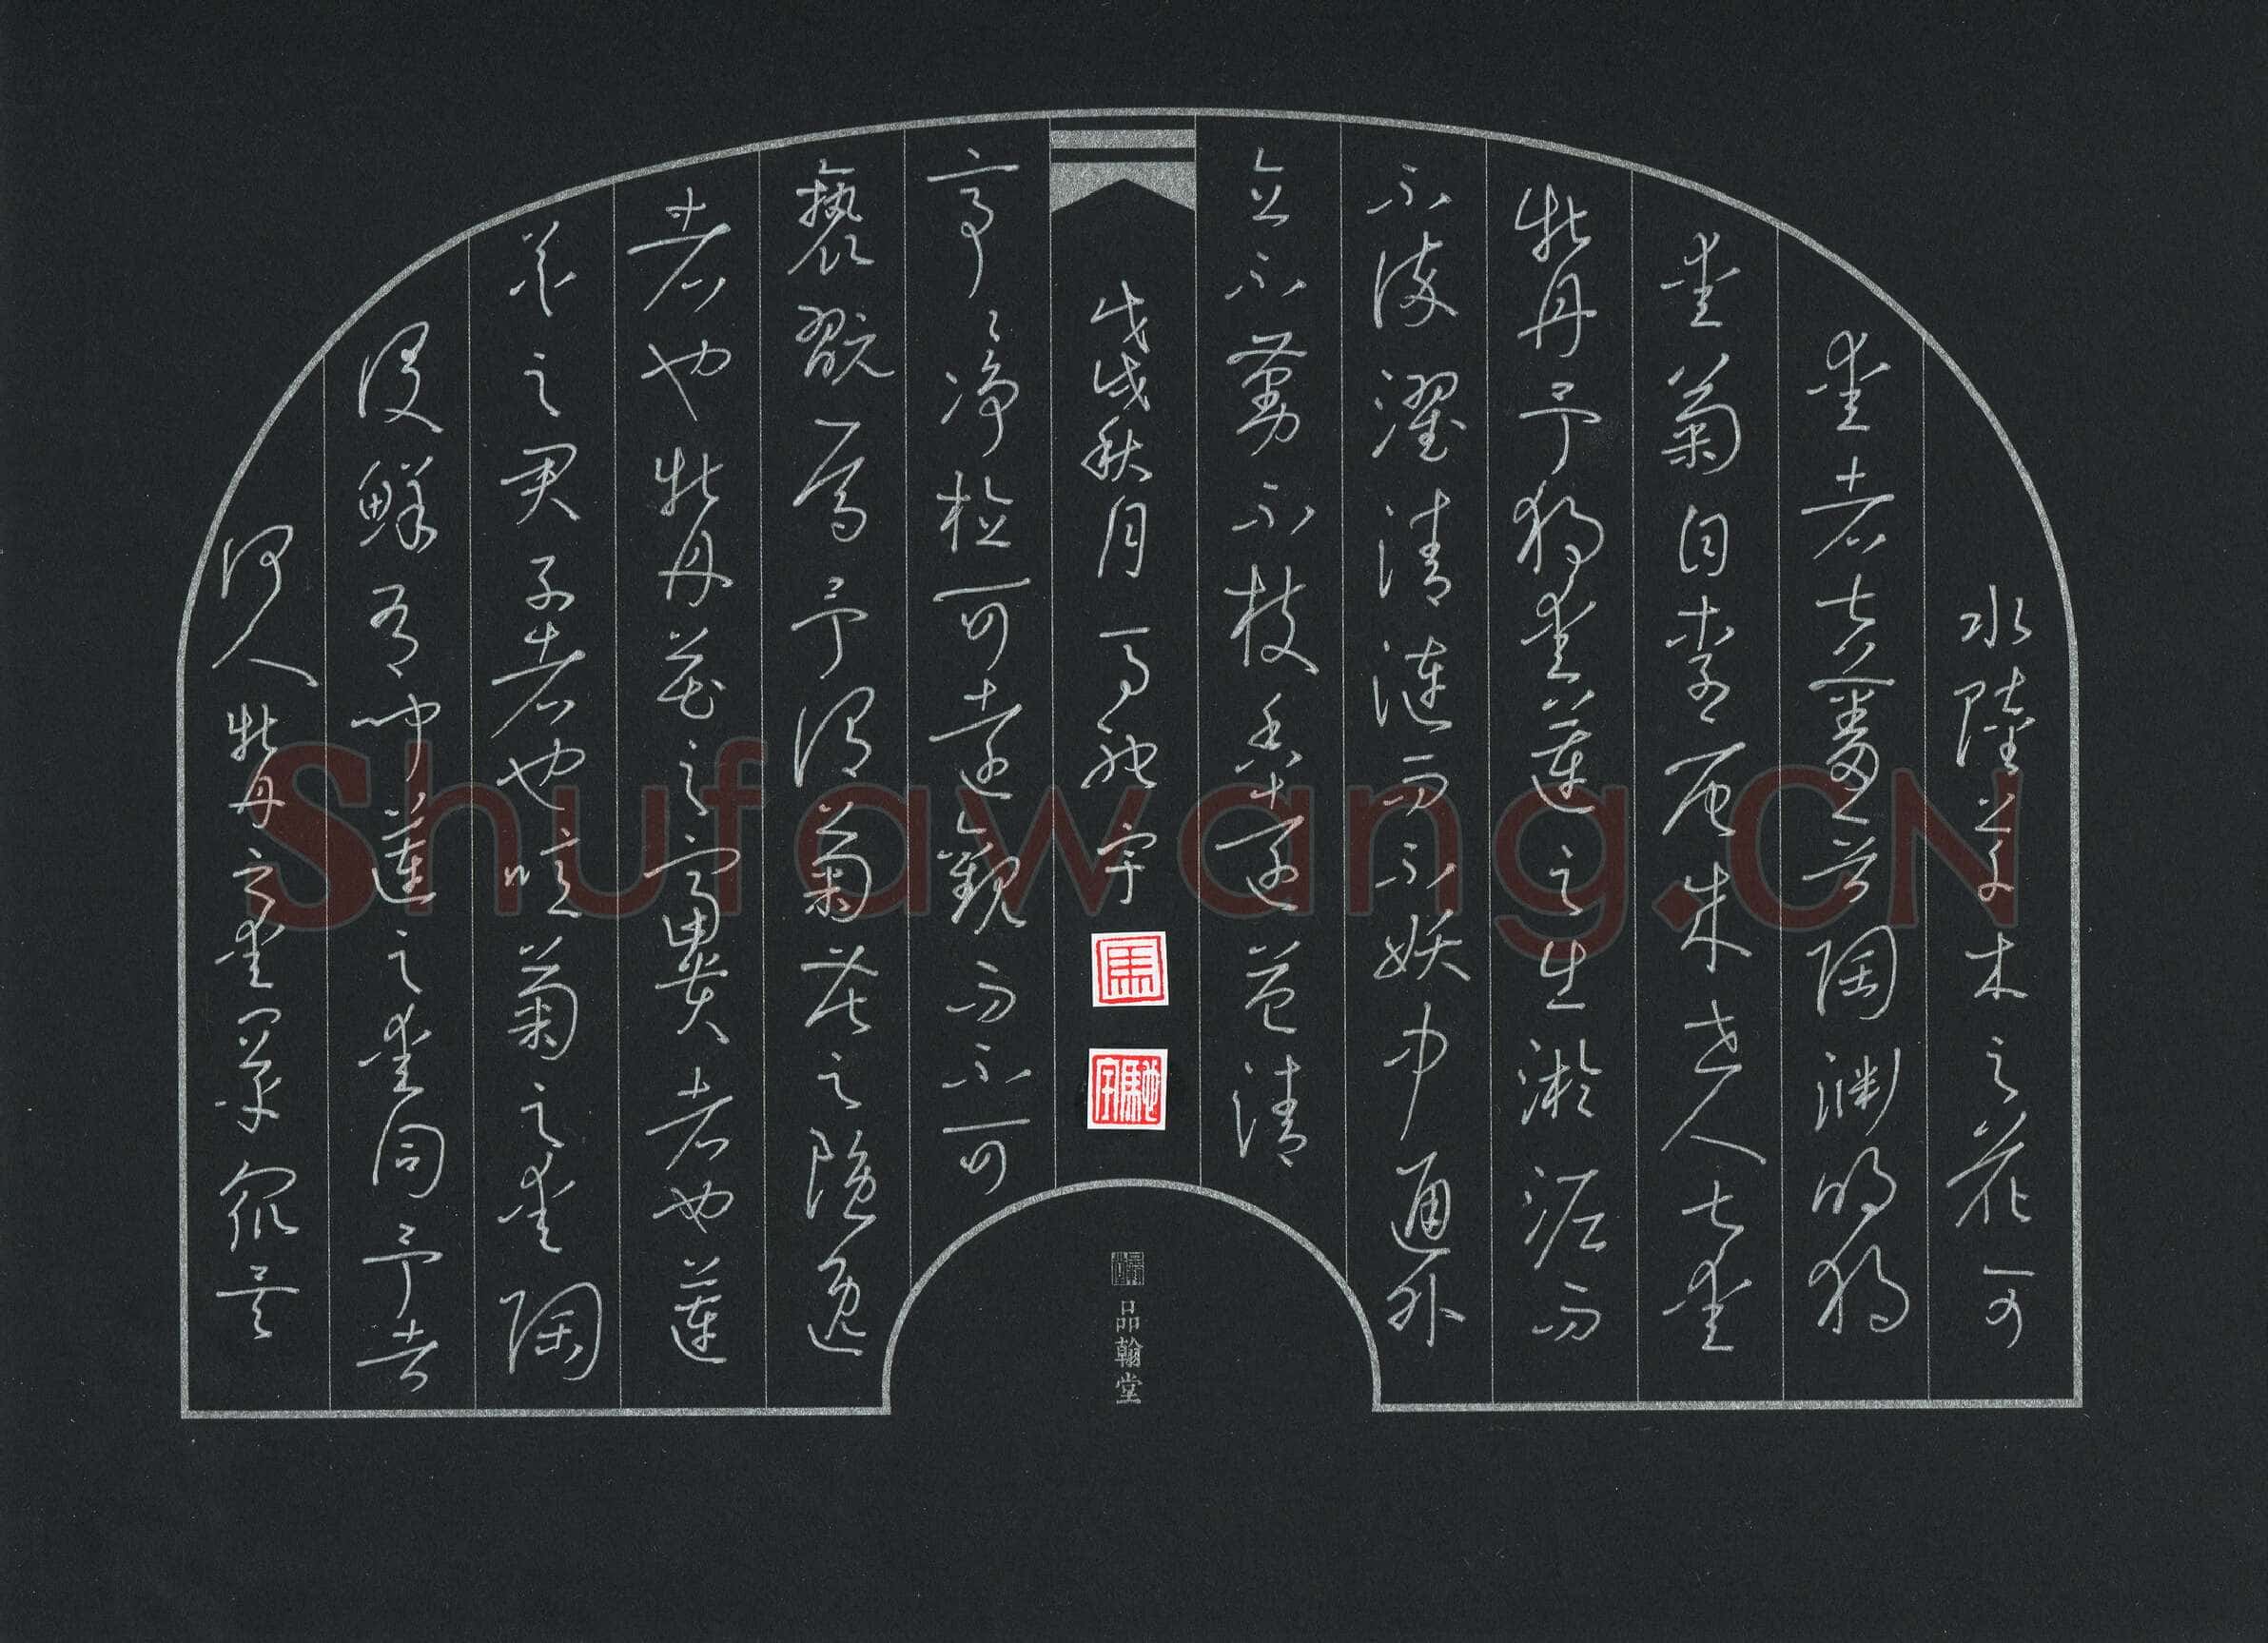 水陸草木之花可
愛者甚蕃晉陶淵明獨
愛菊自李唐来世人甚愛
牡丹予獨愛蓮之生淤泥而
不染濯清漣而不妖中通外
直不蔓不枝香遠益清
戊戌秋月馬馳宇
馬
馳宇
亭々净植可遠觀而不可
褻翫焉予謂菊花之隱逸
者也牡丹花之富貴者也蓮
花之君子者也噫菊之愛陶
後鮮有聞蓮之愛同予者
何人牡丹之愛宜乎衆矣
品翰堂
Shufawang.CN